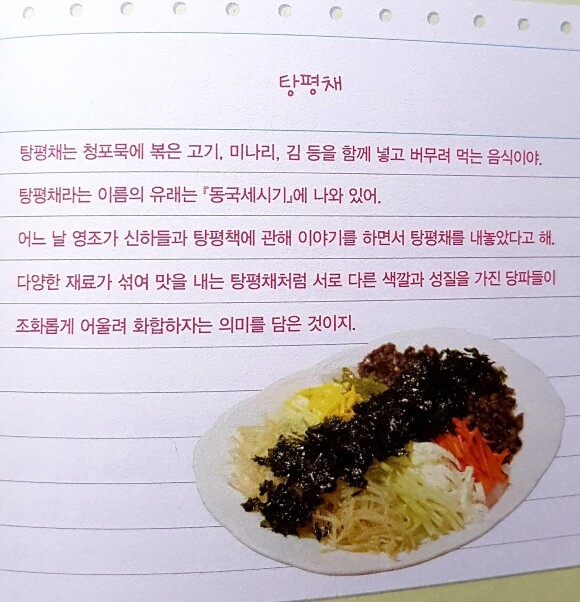 탕평채
탕평채는 청포묵에 볶은 고기, 미나리, 김 등을 함께 넣고 버무려 먹는 음식이야.
탕평채라는 이름의 유래는 『동국세시기』에 나와 있어.
어느 날 영조가 신하들과 탕평책에 관해 이야기를 하면서 탕평채를 내놓았다고 해.
다양한 재료가 섞여 맛을 내는 탕평채처럼 서로 다른 색깔과 성질을 가진 당파들이
조화롭게 어울려 화합하자는 의미를 담은 것이지.